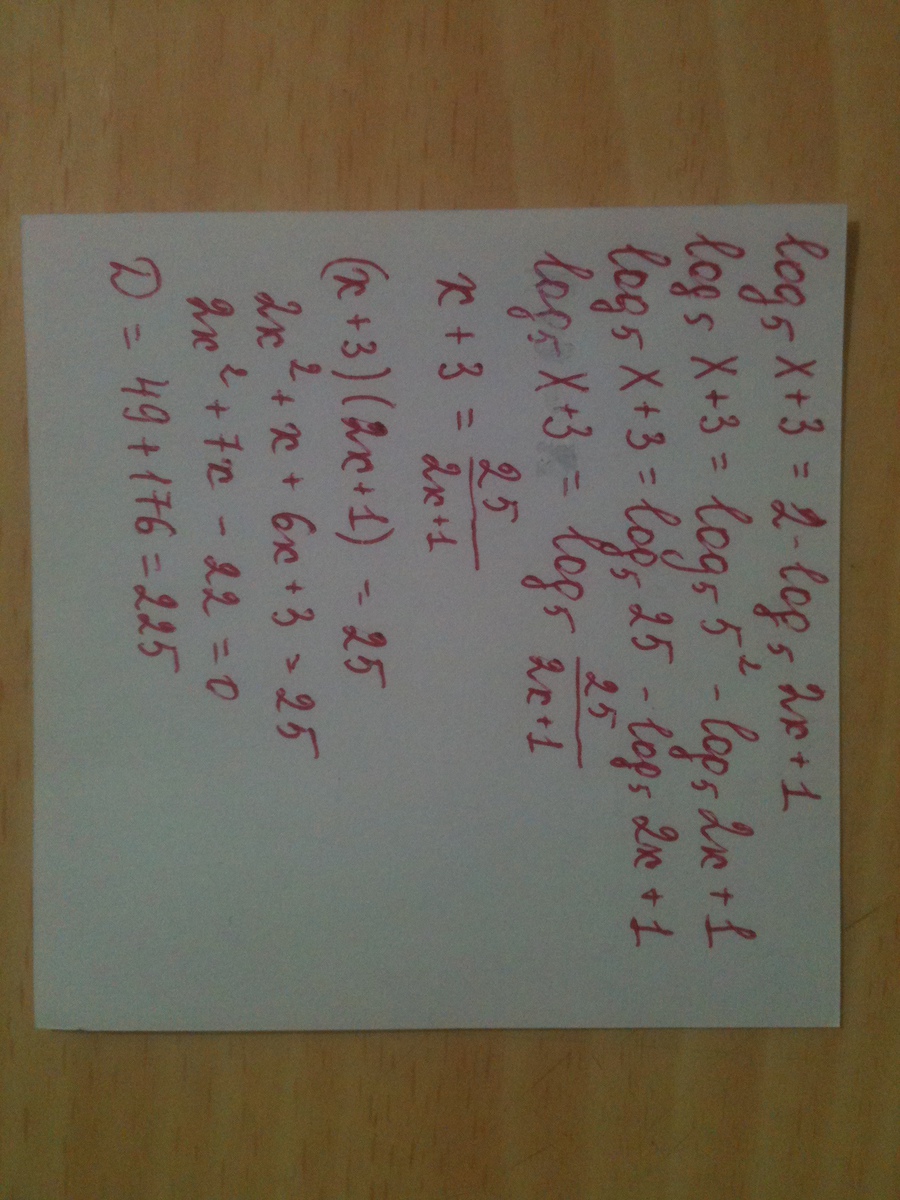 log₅ x+3 = 2-log₅ 2x+1
log₅ x+3 = log₅ 5² - log₅ 2x+1
log₅ x+3 = log₅ 25 - log₅ 2x+1
log₅ x+3 = log₅ 25/2x+1
x+3 = 25/2x+1
(x+3)(2x+1) = 25
2x²+x+6x+3=25
2x²+7x-22=0
D = 49+176=225